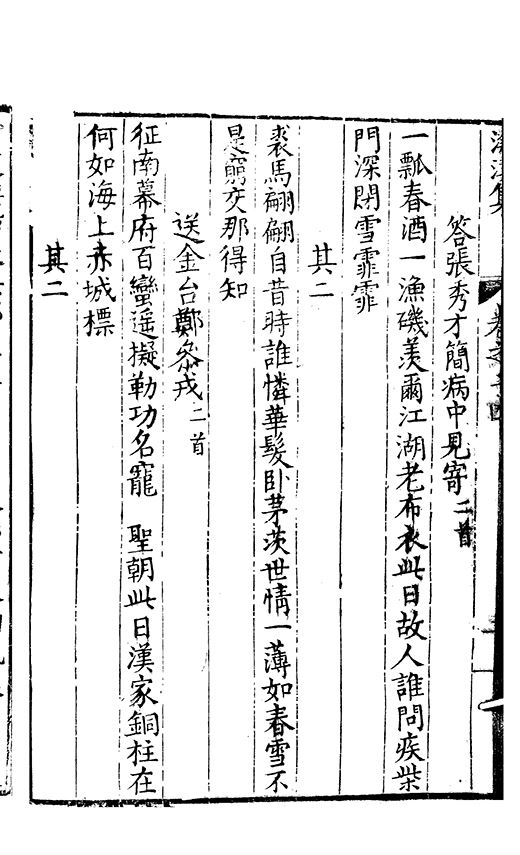 答張秀才簡病中見寄二首
一瓢春酒一漁磯羨爾江湖老布衣此日故人誰問疾柴
門深閉雪霏霏
其二
裘馬翩翩自昔時誰憐華髮臥茅茨世情一薄如春雪不
是窮交那得知
送金台鄭參戎二首
征南幕府百蠻遥擬勒功名寵 聖朝此日漢家銅柱在
何如海上赤城標
其二